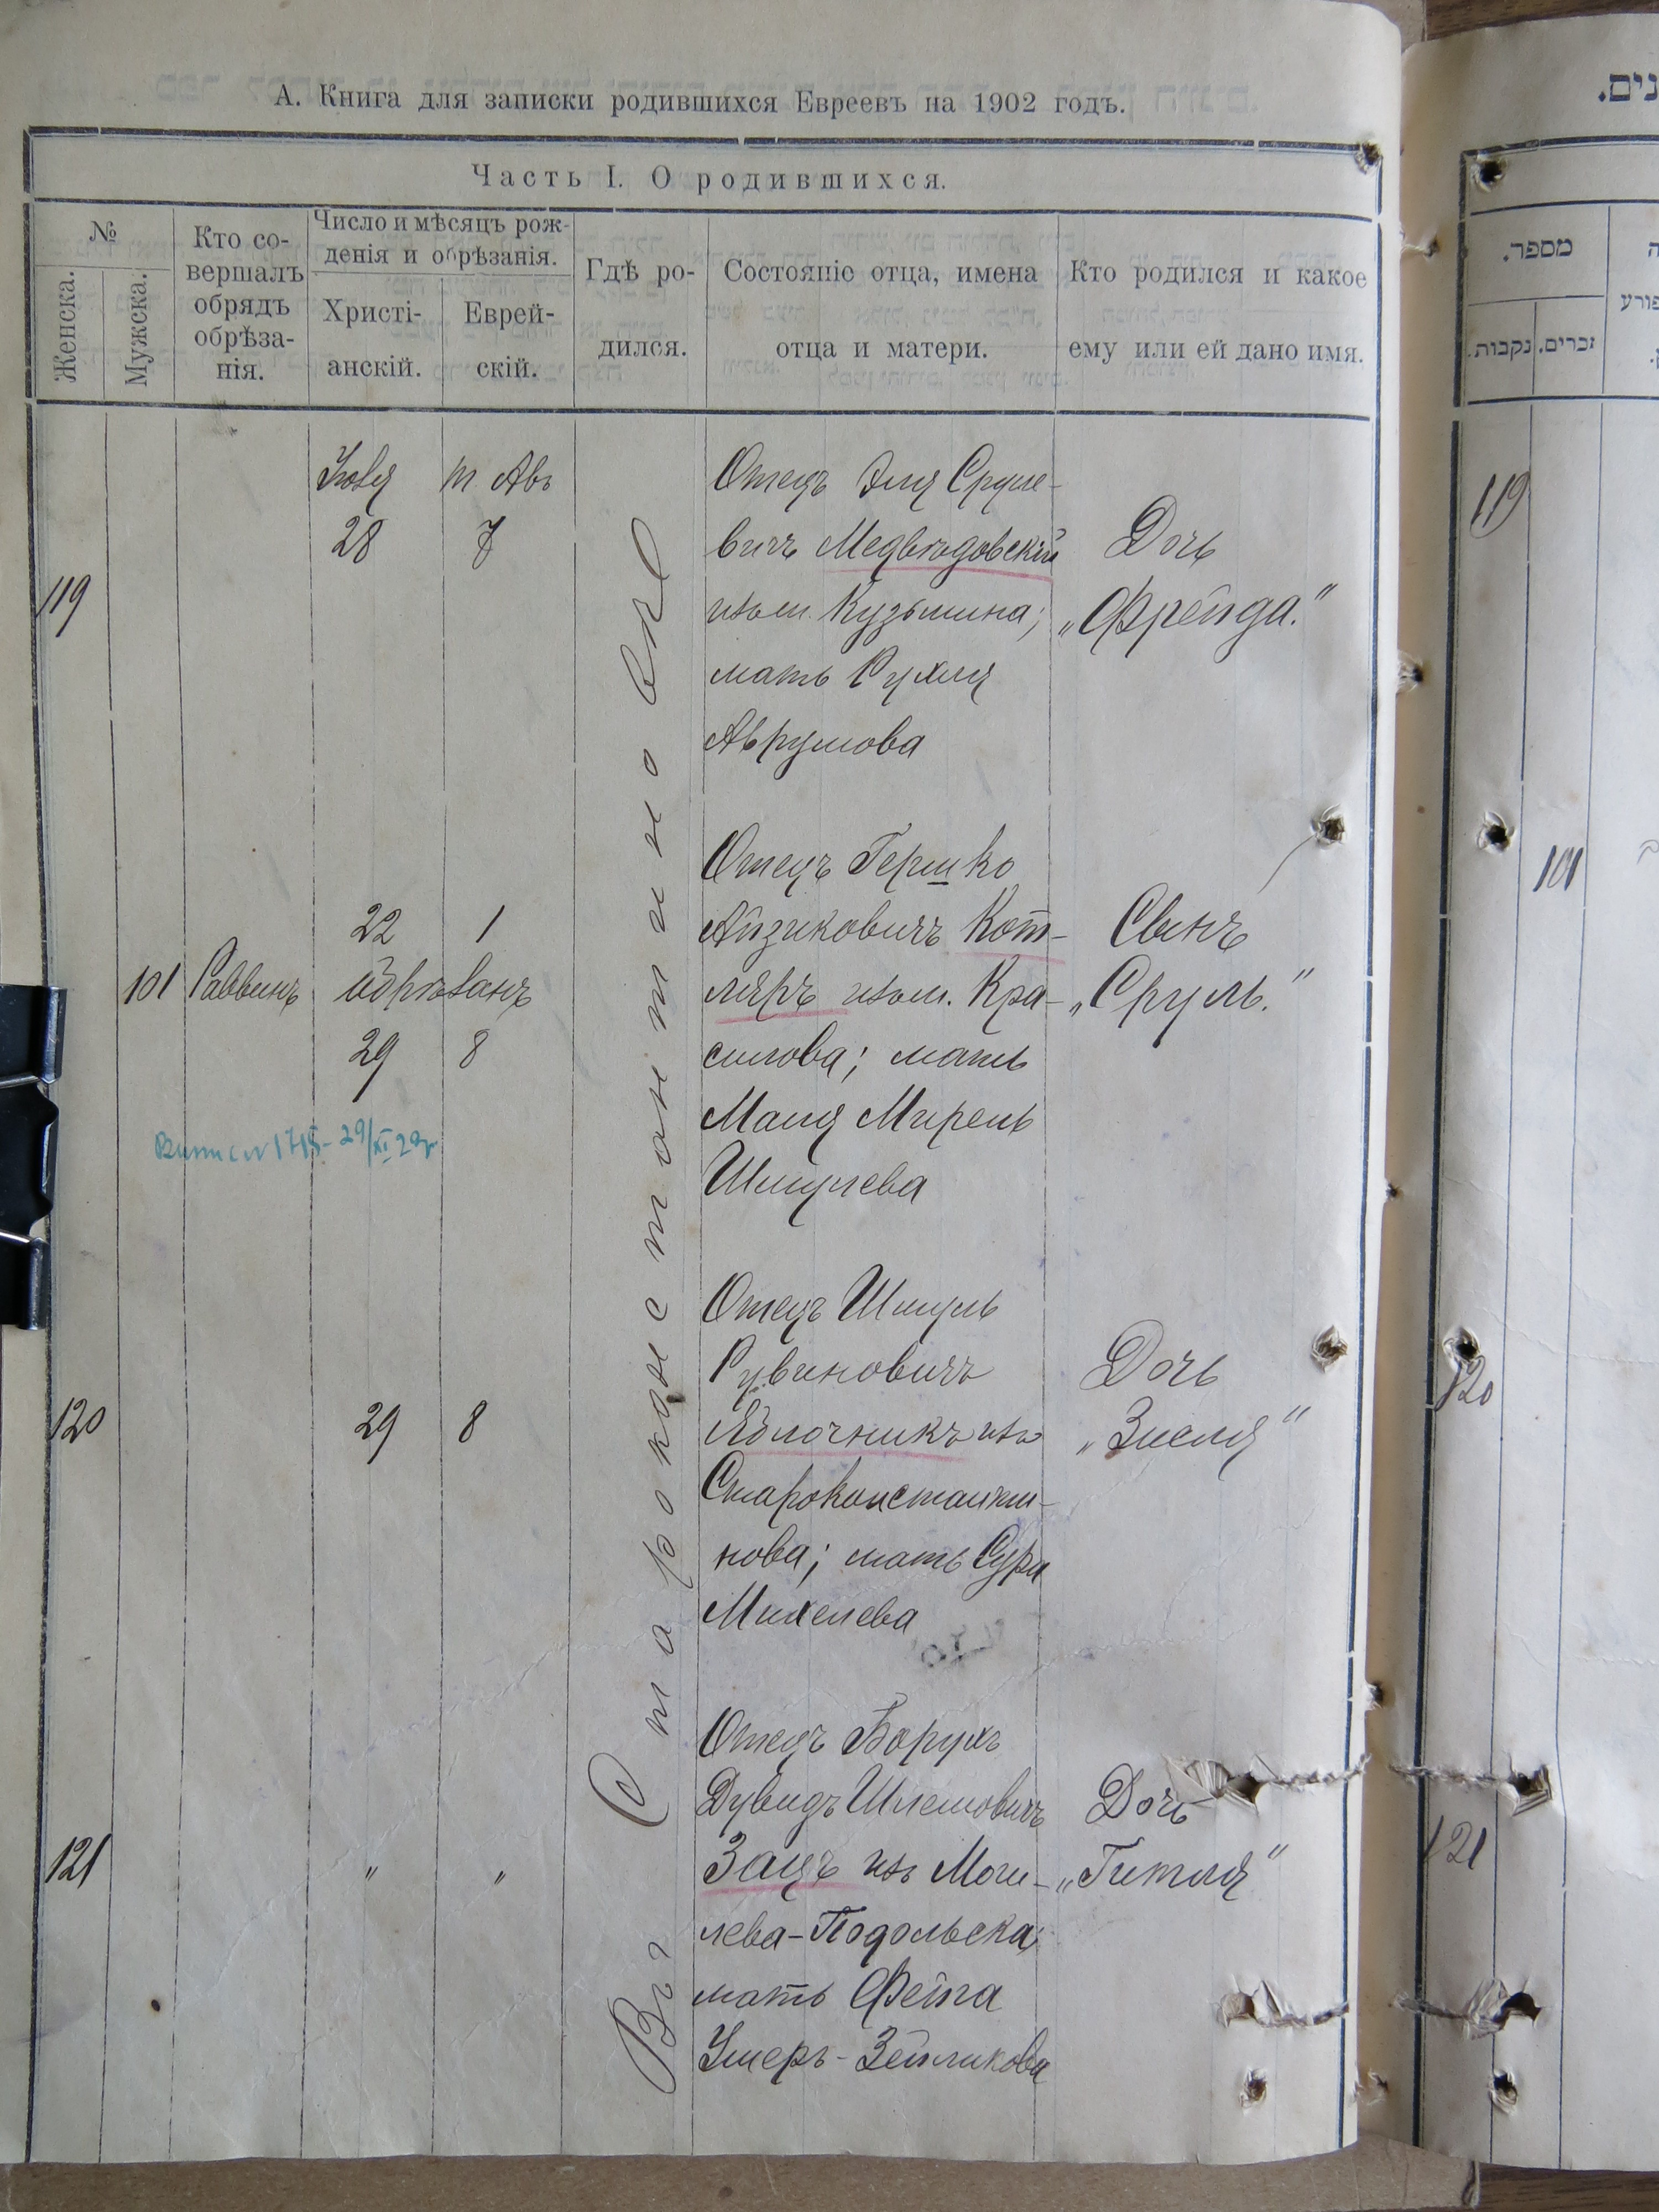 А. Книга для записки родившихся Евреевъ на 1902 годъ.
Часть I. О родившихся.
№
Женска.
Мужска.
Кто со-
вершалъ
обрядъ
обрѣза-
нія.
Число и мѣсяцъ рож-
денія и обрѣзанія.
Христі-
анскій.
Еврей-
скій.
Гдѣ ро-
дился.
Состояніе отца, имена
отца и матери.
Кто родился и какое
ему или ей дано имя.
Въ Староконстантиновѣ
119
Іюля
28
м. Авъ
7
Отецъ Эля Сруле-
вичъ Медвѣдовскій
изъ м. Кузьмина;
мать Рухля
Аврумова
Дочь
„Фрейда."
101
Раввинъ
22 1
обрѣзанъ
29 8
Отецъ Гершко
Айзиковичъ Кот-
ляръ изъ м. Кра-
силова; мать
Маня Мирель
Шмулева
Сынъ
„Сруль."
1715 - 29/XI 29г
120
29 8
Отецъ Шмуль
Рувиновичъ
Яблочникъ изъ
Староконстанти-
нова; мать Сура
Михелева
Дочь
„Зисля"
121
" "
Отецъ Борухъ
Дувидъ Шлемовичъ
Зацъ изъ Моги-
лева-Подольска;
мать Фейга
Ушеръ-Зейликова
Дочь
„Гитля"
נים.
מספר.
נקבות.
זכרים.
119
101
120
121